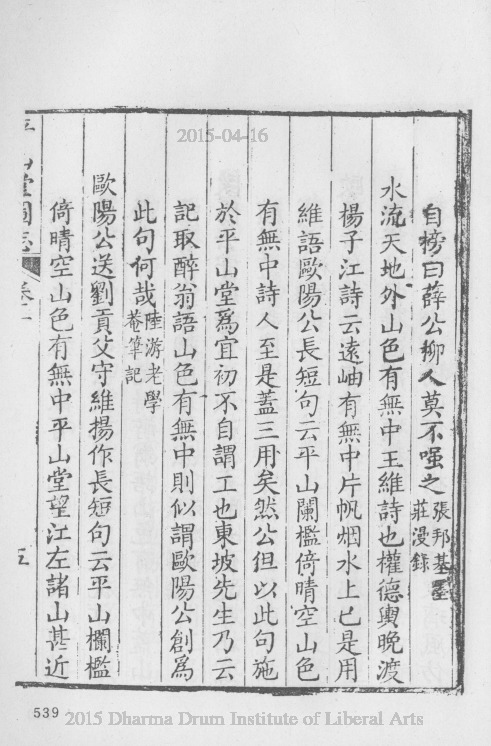 2015-04-16
自榜曰薛公柳人莫不嗤之張邦基墨莊漫錄
水流天地外山色有無中王維詩也權德輿晚渡
楊子江詩云遠岫有無中片帆烟水上已是用
維語歐陽公長短句云平山闌檻倚晴空山色
有無中詩人至是蓋三用矣然公但以此句施
於平山堂爲宜初不自謂工也東坡先生乃云
記取醉翁語山色有無中則似謂歐陽公創爲
此句何哉陸游老學菴筆記
歐陽公送劉貢父守維揚作長短句云平山欄檻
倚晴空山色有無中平山堂望江左諸山甚近
平山堂圖志 卷十 五
539
2015 Dharma Drum Institute of Liberal Arts